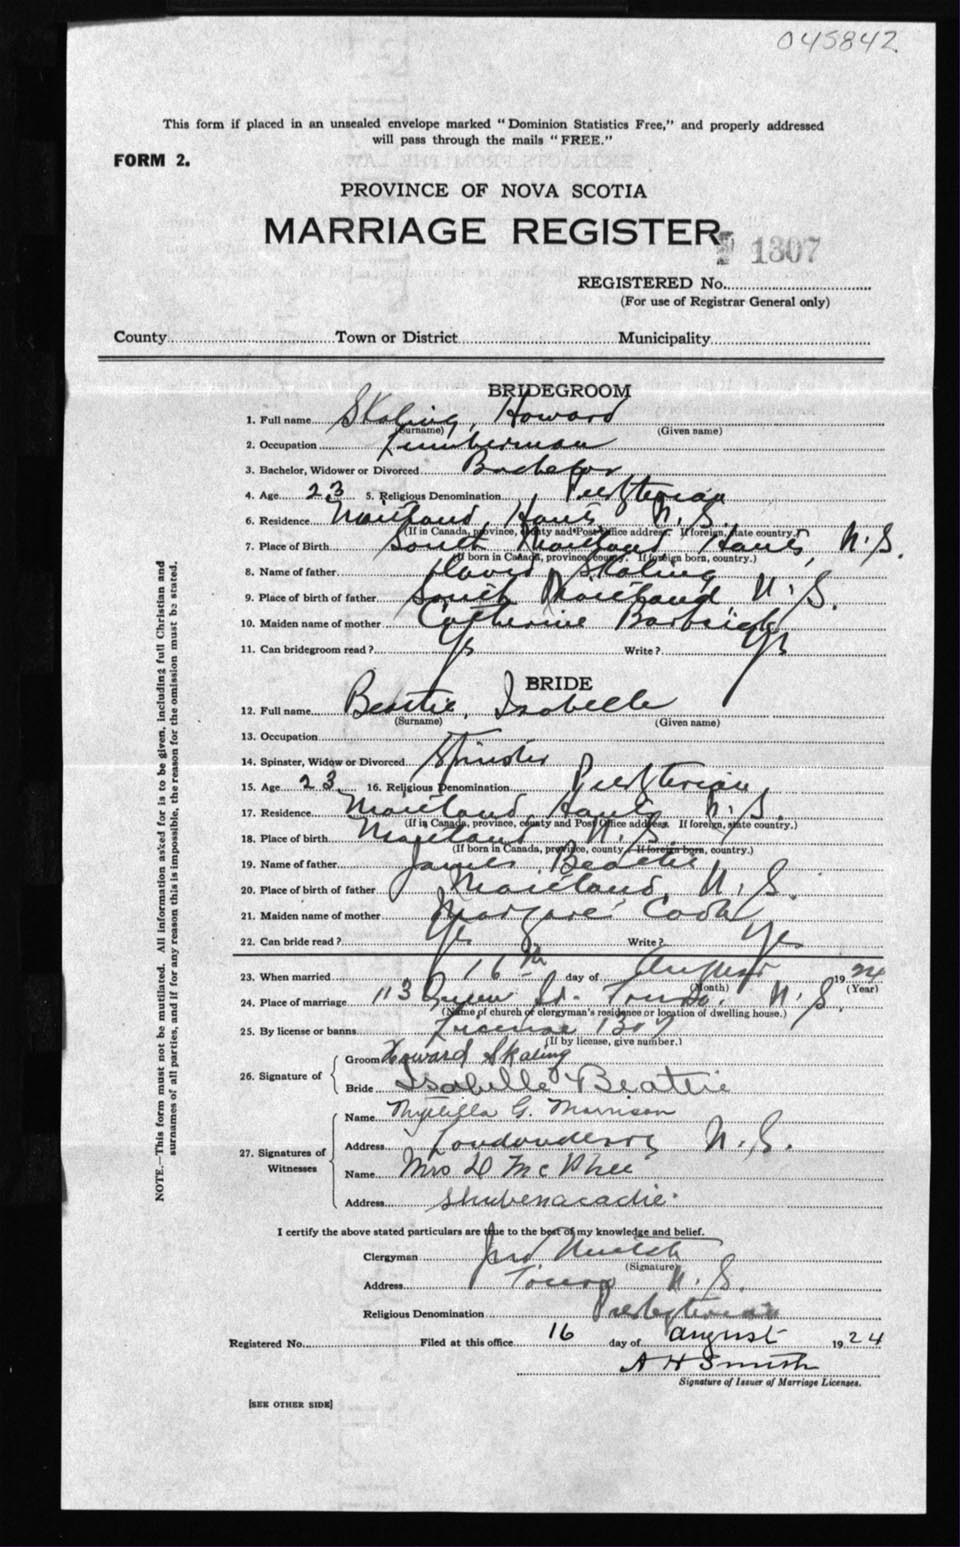 045842
This form if placed in an unsealed envelope marked "Dominion Statistics Free," and properly addressed
will pass through the mails "FREE."
FORM 2.
PROVINCE OF NOVA SCOTIA
MARRIAGE REGISTER
1307
REGISTERED No.
(For use of Registrar General only)
County Town or District Municipality
BRIDEGROOM
1. Full name Skaling, Howard
(Surname) (Given name)
2. Occupation Lumberman
3. Bachelor, Widower or Divorced Bachelor
4. Age 23 5. Religious Denomination Presbyterian
6. Residence Maitland, Hants N.S.
(If in Canada, province, county and Post Office address. If foreign, state country.)
7. Place of Birth South Maitland Hants, N.S.
(If born in Canada, province, county. If foreign born, country.)
8. Name of father David Skaling
9. Place of birth of father South Maitland, N.S.
10. Maiden name of mother Catherine
11. Can bridegroom read? Yes Write? Yes
BRIDE
12. Full name Beattie, Isabelle
(Surname) (Given name)
13. Occupation
14. Spinster, Widow or Divorced Spinster
15. Age 23 16. Religious Denomination Presbyterian
17. Residence Maitland, Hants N.S.
(If in Canada, province, county and Post Office address. If foreign, state country.)
18. Place of birth Maitland N.S.
(If born in Canada, province, county. If foreign born, country.)
19. Name of father James Beattie
20. Place of birth of father Maitland, N.S.
21. Maiden name of mother Margaret Cook
22. Can bride read? Yes Write? Yes
23. When married 16th day of August 1924
(Month) (Year)
24. Place of marriage 113 Queen St. Truro, N.S.
(Name of church or clergyman's residence or location of dwelling house.)
25. By license or banns License 1307
(If by license, give number.)
26. Signature of Groom Howard Skaling
Bride Isabelle Beattie
27. Signatures of Witnesses
Name G. Morrison
Address Londonderry N.S.
Name Mrs D McPhee
Address Shubenacadie.
I certify the above stated particulars are true to the best of my knowledge and belief.
Clergyman
(Signature)
Address Truro N.S.
Religious Denomination Presbyterian
Registered No. Filed at this office 16 day of August 1924
A H Smith
Signature of Issuer of Marriage Licenses.
[SEE OTHER SIDE]
NOTE.—This form must not be mutilated. All information asked for is to be given, including full Christian and
surnames of all parties, and if for any reason this is impossible, the reason for the omission must be stated.